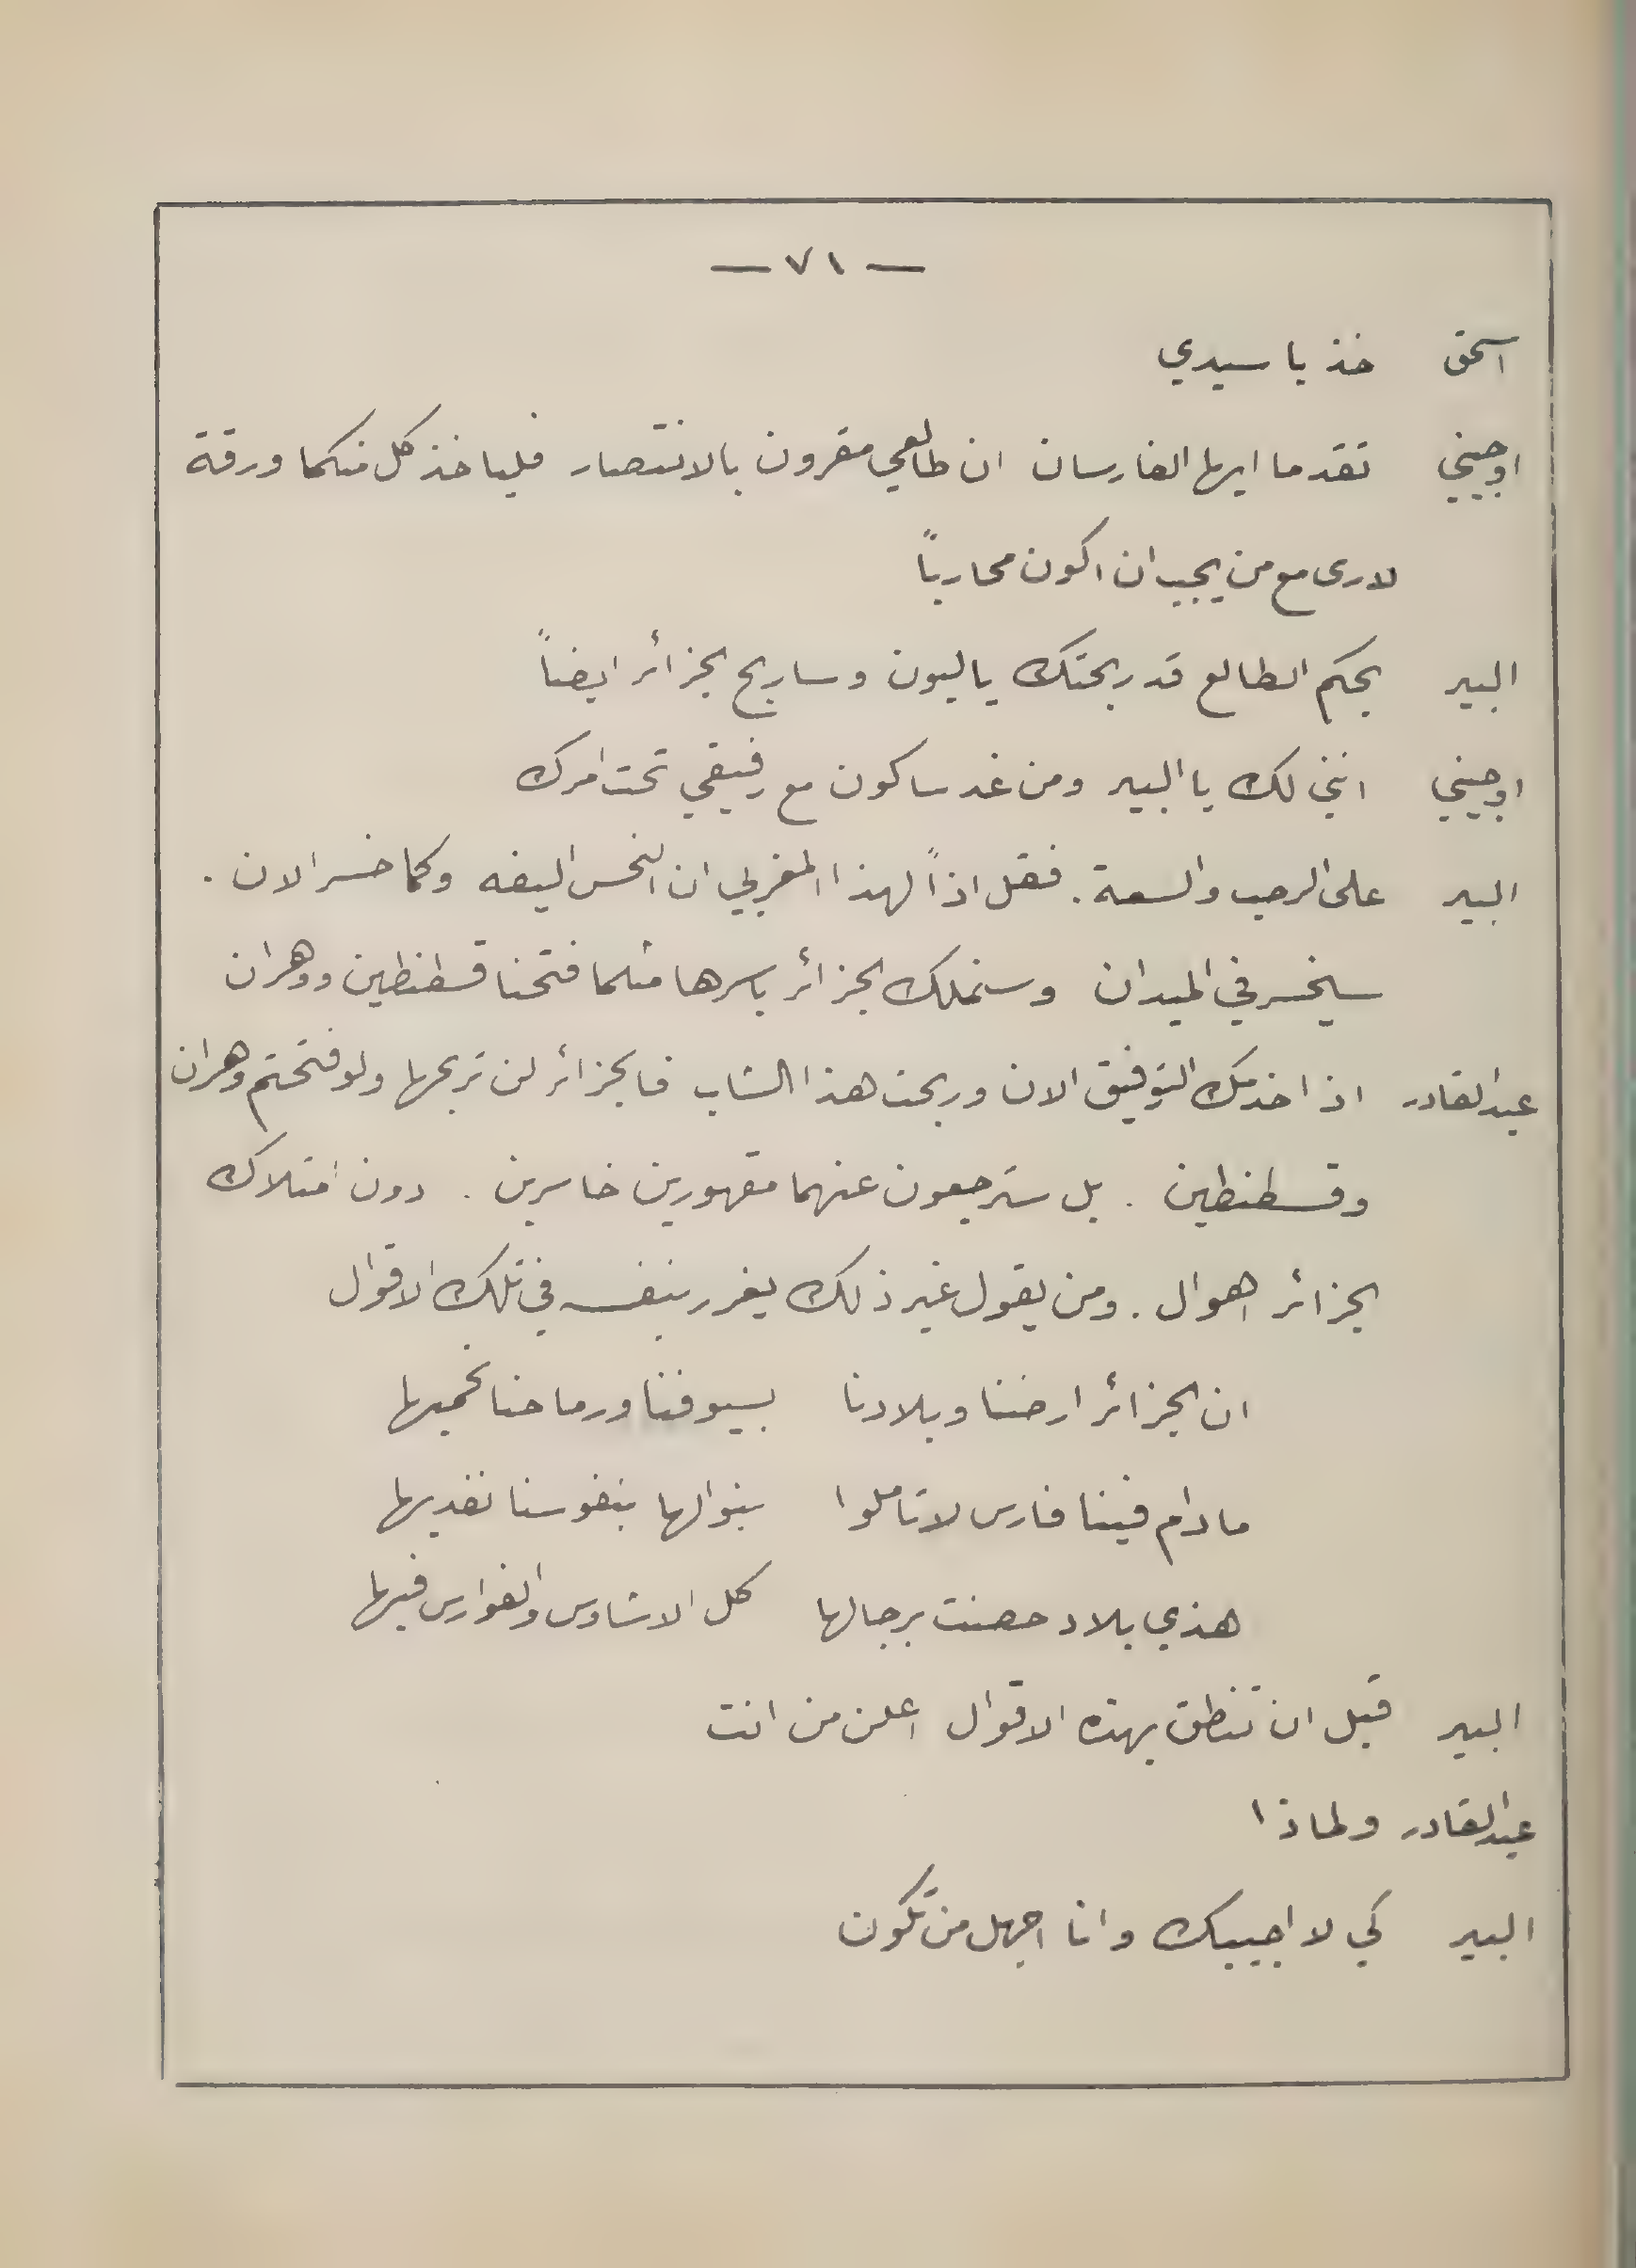 — ٧١ —
اسحق خذ يا سيدي
اوجيني تقدما ايها الفارسان ان طالعي مقرون بالانتصار فلياخذ كل منكما ورقة
لارى مع من يجب ان اكون محارباً
البير بحكم الطالع قد ربحتك يا ليون وساربح الجزائر ايضاً
اوجيني انني لك يا البير ومن غد ساكون مع رفيقي تحت امرك
البير على الرحب والسعة . فقل اذاً لهذا المغربي ان النحس اليفه وكما خسر الان .
سيخسر في الميدان وسنملك الجزائر باسرها مثلما فتحنا قسطنطين ووهران
عبد القادر اذا خدمك التوفيق الان وربحت هذا الشاب فالجزائر لن تربحها ولو فتحتم وهران
وقسطنطين . بل سترجعون عنهما مقهورين خاسرين . دون امتلاك
الجزائر اهوال . ومن يقول غير ذلك يغرر بنفسه في تلك الاقوال
ان الجزائر ارضنا وبلادنا بسيوفنا ورماحنا نحميها
ما دام فينا فارس لا تاملوا بنوالها بنفوسنا نفديها
هذي بلاد حصنت برجالها كل الاشاوس والفوارس فيها
البير قبل ان تنطق بهذه الاقوال اعلن من انت
عبد القادر ولماذا
البير كي لا اجيبك وانا اجهل من تكون